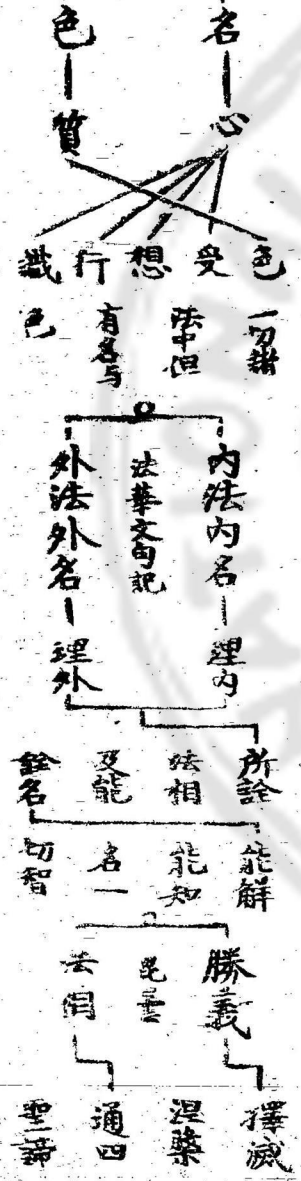 名 心
色 質
色 受 想 行 識
一切諸
法中但
有名与
色
内法内名 理内
法華文句記
外法外名 理外
所詮
法相
及能
詮名
能解
能知
名一
切智
勝義
毘曇
法個
擇滅
涅槃
通四
聖諦